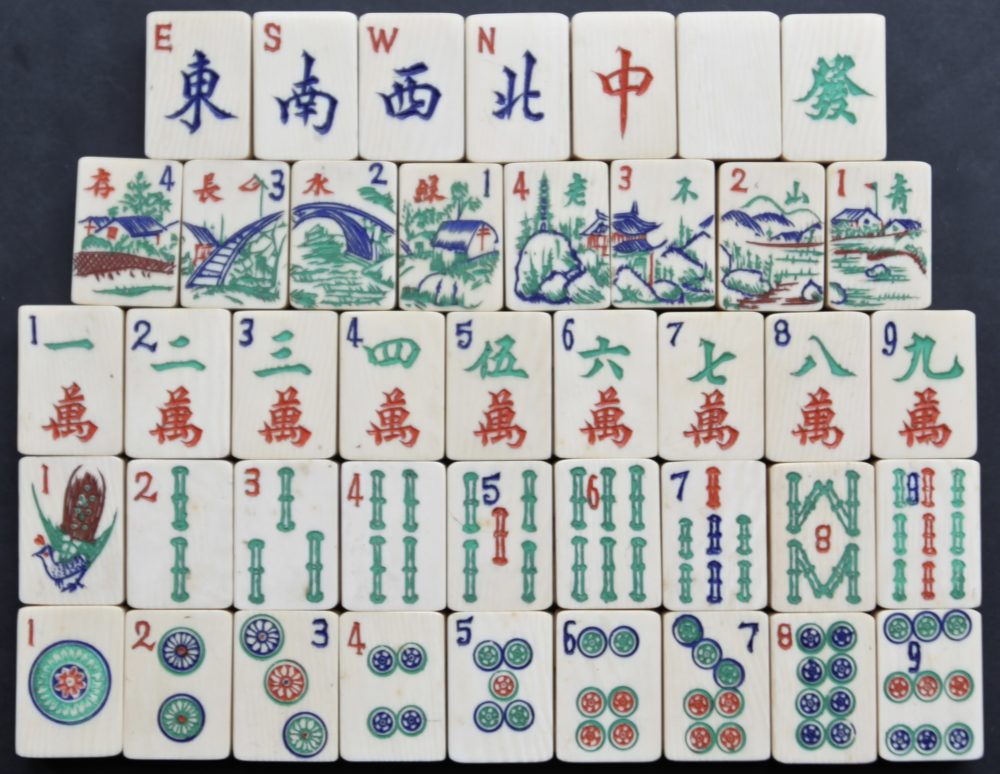 E S W N
東 南 西 北 中 發
存 4 長 3 水 2 綠 1 4 老 3 不 2 山 1 青
1 一 2 二 3 三 4 四 5 伍 6 六 7 七 8 八 9 九
萬 萬 萬 萬 萬 萬 萬 萬 萬
1 2 3 4 5 6 7 8 9
1 2 3 4 5 6 7 8 9